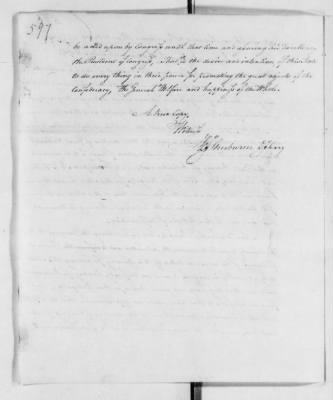 597
be acted upon by Congress until that time and assuring his Excellency
the President of Congress, that it is the desire and intention of this State
to do every thing in their power for promoting the great objects of the
Confederacy, the general Welfare and happiness of the Whole.
A true Copy